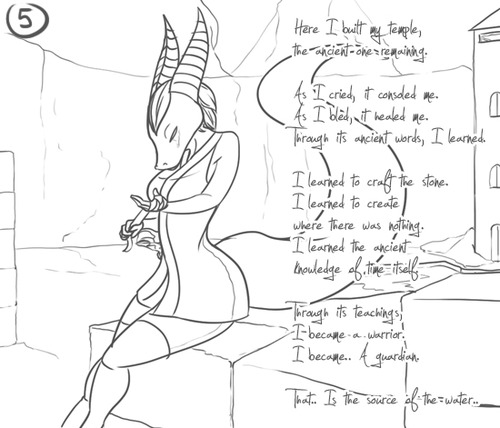 5
Here I built my temple,
the ancient one remaining.
As I cried, it consoled me.
As I bled, it healed me.
Through its ancient words, I learned.
I learned to craft the stone.
I learned to create
where there was nothing.
I learned the ancient
knowledge of time itself.
Through its teachings,
I became a warrior.
I became.. A guardian.
That.. Is the source of the water..